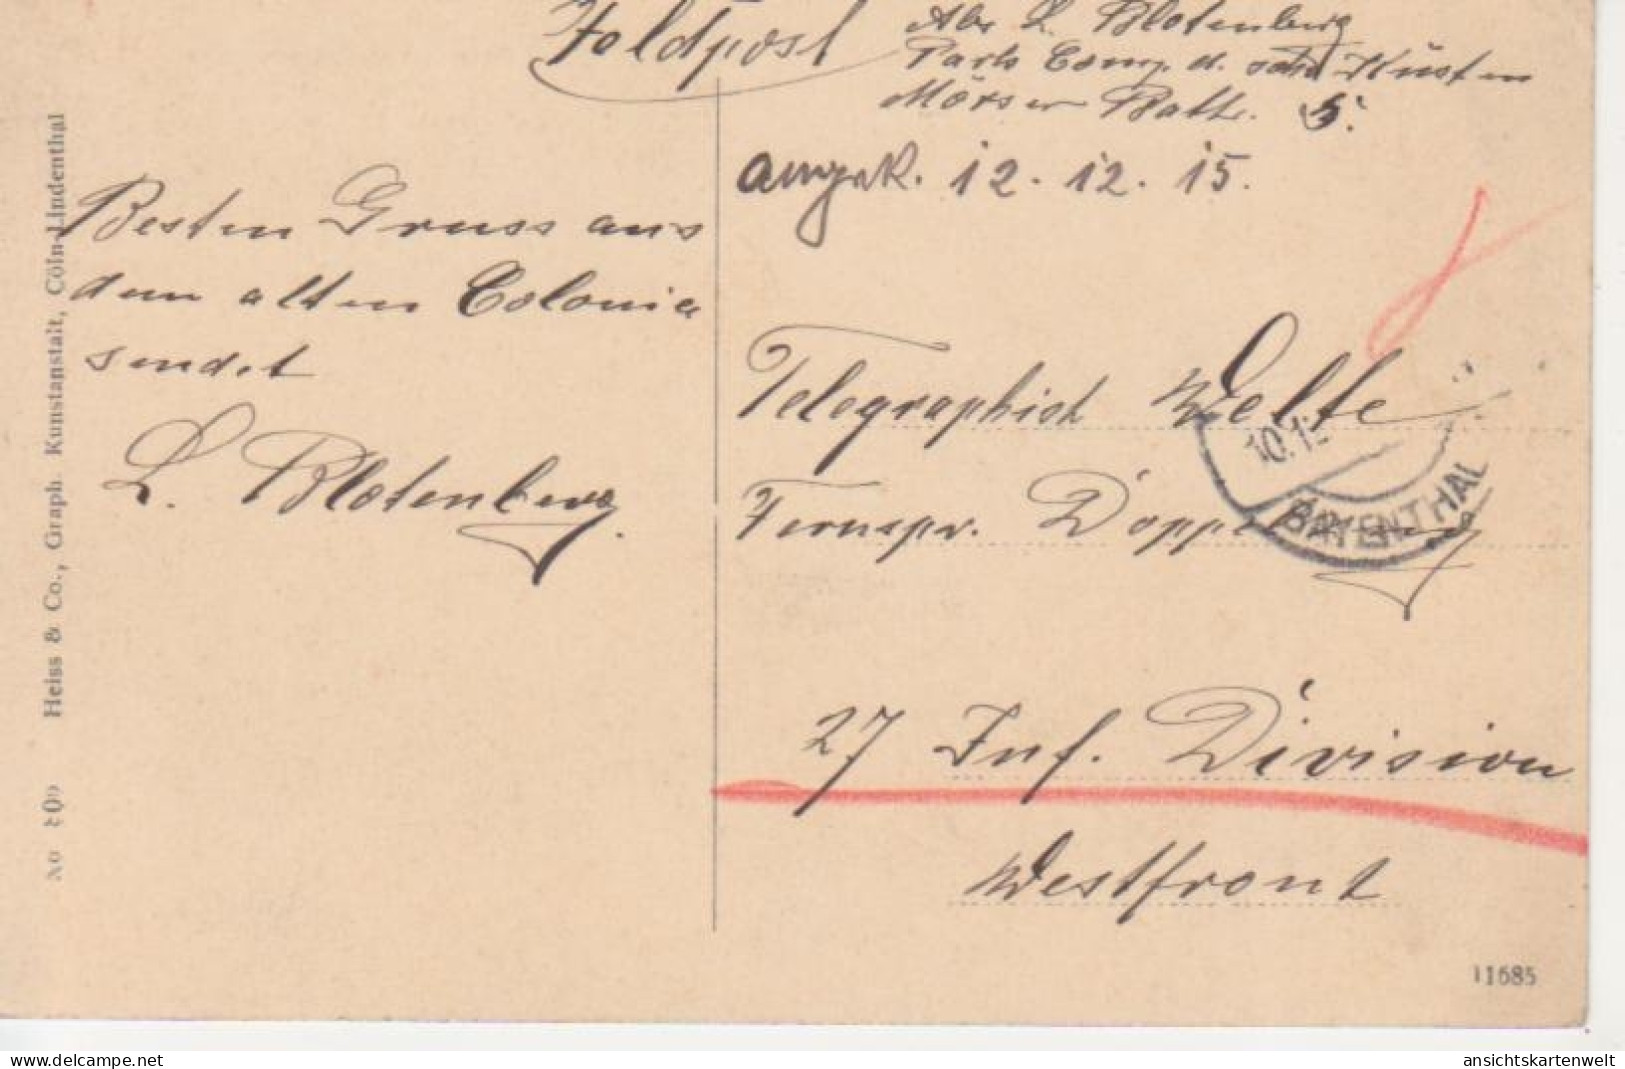 Feldpost
Abs L. Blotenberg
Park Comp. d. Küsten
Mörser Batt. 5.
12.12.15.
Besten Gruss aus
dem alten Colonia
sendet
L. Blotenberg.
Telegraphist Welte
Fernspr. Doppelzug
27 Inf. Division
Westfront
BAYENTHAL
No 109 Heiss & Co., Graph. Kunstanstalt, Cöln-Lindenthal
11685
ansichtskartenwelt